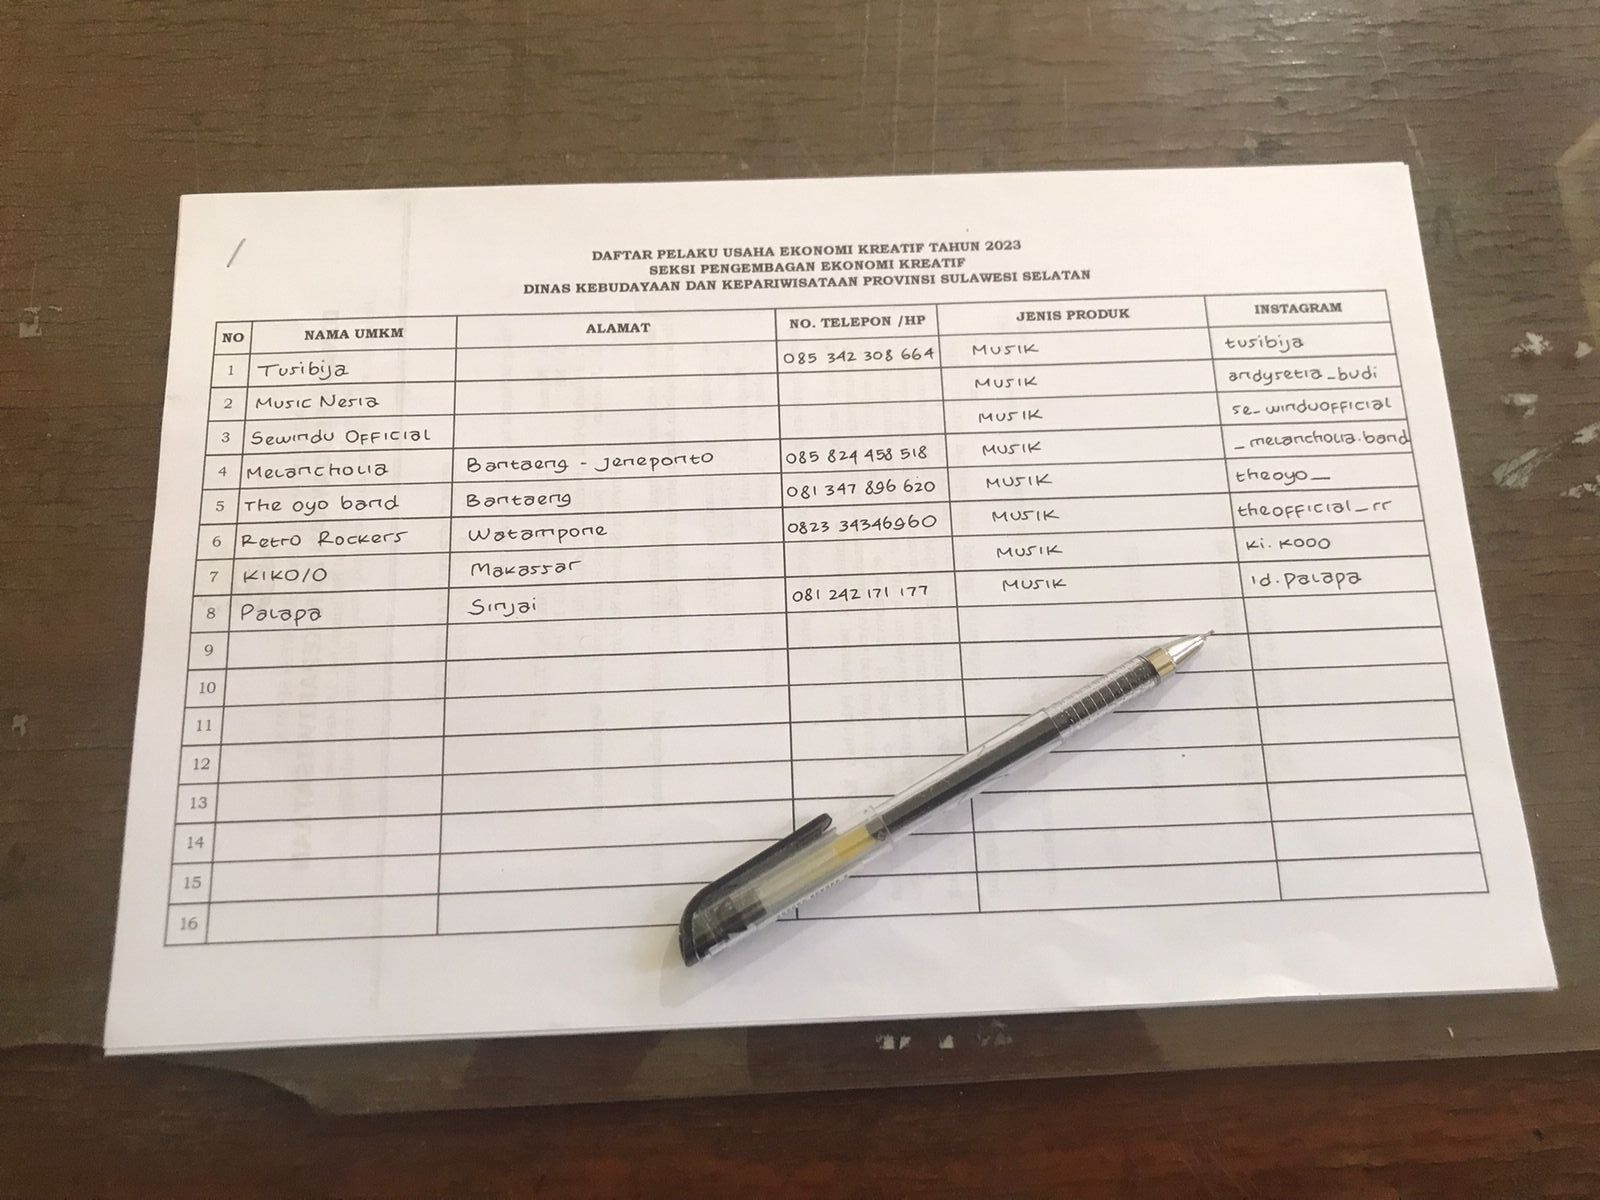 DAFTAR PELAKU USAHA EKONOMI KREATIF TAHUN 2023
SEKSI PENGEMBAGAN EKONOMI KREATIF
DINAS KEBUDAYAAN DAN KEPARIWISATAAN PROVINSI SULAWESI SELATAN
NO NAMA UMKM ALAMAT NO. TELEPON /HP JENIS PRODUK INSTAGRAM
1 Tusibija 085 342 308 664 MUSIK tusibija
2 Music Nesia MUSIK andysetia_budi
3 Sewindu Official MUSIK se_winduofficial
4 Melancholia Bantaeng - Jeneponto 085 824 458 518 MUSIK _melancholia.band
5 The oyo band Bantaeng 081 347 896 620 MUSIK theoyo_
6 Retro Rockers Watampone 0823 34346960 MUSIK theofficial_rr
7 KIKO/O Makassar MUSIK ki.kooo
8 Palapa Sinjai 081 242 171 177 MUSIK id.palapa
9
10
11
12
13
14
15
16